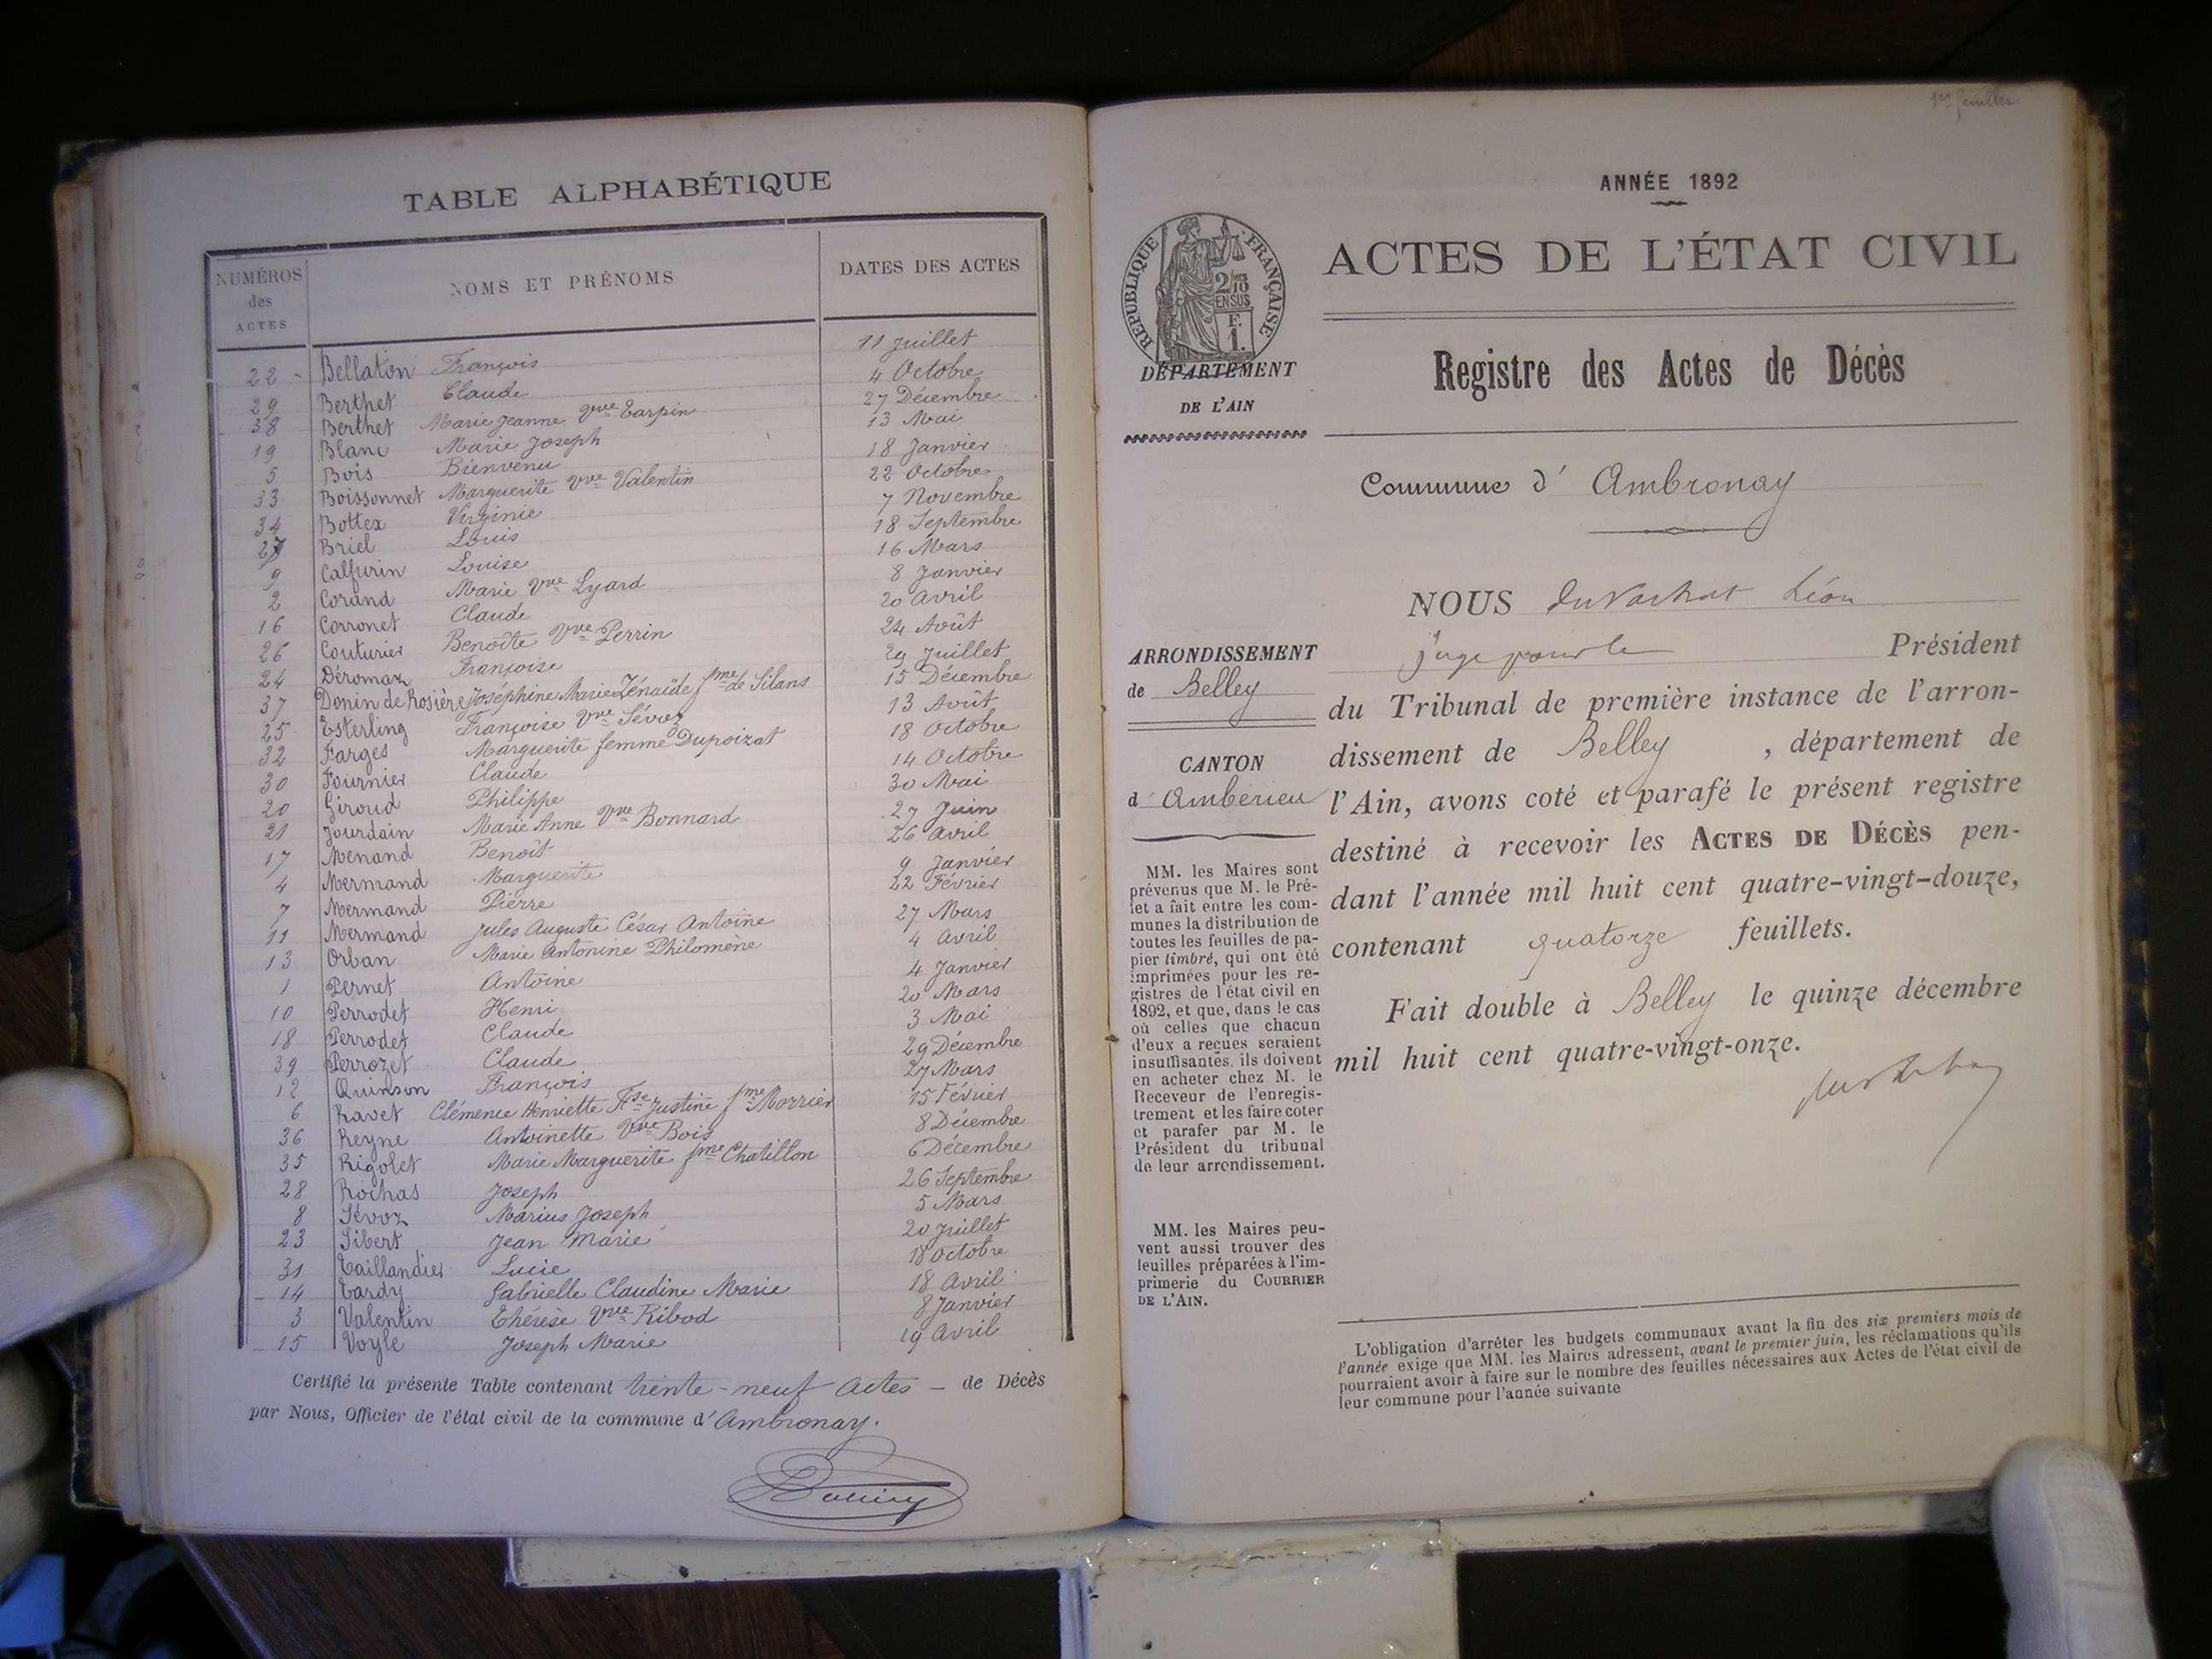 TABLE ALPHABÉTIQUE
NUMÉROS des ACTES NOMS ET PRÉNOMS DATES DES ACTES
22 Bellaton François 11 Juillet
29 Berthet Claude 4 Octobre
38 Berthet Marie Jeanne Vve Tarpin 27 Décembre
19 Blanc Marie Joseph 13 Mai
5 Bois Bienvenu 18 Janvier
33 Boissonnet Marguerite Vve Valentin 22 Octobre
34 Bottex Virginie 7 Novembre
27 Briel Louis 18 Septembre
9 Calfurin Louise 16 Mars
2 Corand Marie Vve Lyard 8 Janvier
16 Corronet Claude 20 Avril
26 Couturier Benoîte Vve Perrin 24 Août
24 Déromaz Françoise 29 Juillet
37 Donin de Rosière Joséphine Marie Zénaïde fme de Silans 15 Décembre
25 Esterling Françoise Vve Sévoz 13 Août
32 Farges Marguerite femme Dupoizat 18 Octobre
30 Fournier Claude 14 Octobre
20 Giroud Philippe 30 Mai
21 Jourdain Marie Anne Vve Bonnard 27 Juin
17 Menand Benoît 26 Avril
4 Mermand Marguerite 9 Janvier
7 Mermand Pierre 22 Février
11 Mermand Jules Auguste César Antoine 27 Mars
13 Orban Marie Antonine Philomène 4 Avril
1 Pernet Antoine 4 Janvier
10 Perrodet Henri 20 Mars
18 Perrodet Claude 3 Mai
39 Perrozet Claude 29 Décembre
12 Quinson François 27 Mars
6 Ravet Clémence Henriette Fse Justine fme Morrier 15 Février
36 Reyne Antoinette Vve Bois 8 Décembre
35 Rigolet Marie Marguerite fme Chatillon 6 Décembre
28 Rochas Joseph 26 Septembre
8 Sévoz Marius Joseph 5 Mars
23 Sibert Jean Marie 20 Juillet
31 Taillandier Lucie 18 Octobre
14 Tardy Gabrielle Claudine Marie 18 Avril
3 Valentin Thérèse Vve Ribod 8 Janvier
15 Voyle Joseph Marie 19 Avril
Certifié la présente Table contenant trente-neuf actes — de Décès
par Nous, Officier de l'état civil de la commune d'Ambronay.
1er feuillet
ANNÉE 1892
ACTES DE L'ÉTAT CIVIL
RÉPUBLIQUE FRANÇAISE
2/10 EN SUS
F. 1.
DÉPARTEMENT
DE L'AIN
Registre des Actes de Décès
Commune d' Ambronay
ARRONDISSEMENT
de Belley
CANTON
d' Ambérieu
MM. les Maires sont
prévenus que M. le Pré-
fet a fait entre les com-
munes la distribution de
toutes les feuilles de pa-
pier timbré, qui ont été
imprimées pour les re-
gistres de l'état civil en
1892, et que, dans le cas
où celles que chacun
d'eux a reçues seraient
insuffisantes, ils doivent
en acheter chez M. le
Receveur de l'enregis-
trement et les faire coter
et parafer par M. le
Président du tribunal
de leur arrondissement.
MM. les Maires peu-
vent aussi trouver des
feuilles préparées à l'im-
primerie du COURRIER
DE L'AIN.
NOUS Duvachat Léon
juge pour le Président
du Tribunal de première instance de l'arron-
dissement de Belley , département de
l'Ain, avons coté et parafé le présent registre
destiné à recevoir les ACTES DE DÉCÈS pen-
dant l'année mil huit cent quatre-vingt-douze,
contenant quatorze feuillets.
Fait double à Belley le quinze décembre
mil huit cent quatre-vingt-onze.
L'obligation d'arrêter les budgets communaux avant la fin des six premiers mois de
l'année exige que MM. les Maires adressent, avant le premier juin, les réclamations qu'ils
pourraient avoir à faire sur le nombre des feuilles nécessaires aux Actes de l'état civil de
leur commune pour l'année suivante